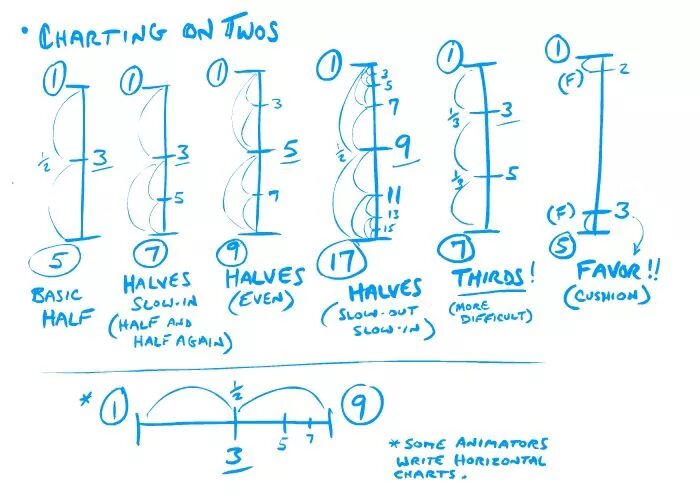 • CHARTING ON TWOS
1
1/2
3
5
BASIC
HALF
1
3
5
7
HALVES
SLOW-IN
(HALF AND
HALF AGAIN)
1
3
5
7
9
HALVES
(EVEN)
1
3
5
7
1/2
9
11
13
15
17
HALVES
(SLOW-OUT
SLOW-IN)
1
1/3
3
1/3
5
7
THIRDS!
(MORE
DIFFICULT)
1
(F) 2
(F) 3
5
FAVOR!!
(CUSHION)
* 1 1/2 9
3 5 7
* SOME ANIMATORS
WRITE HORIZONTAL
CHARTS.